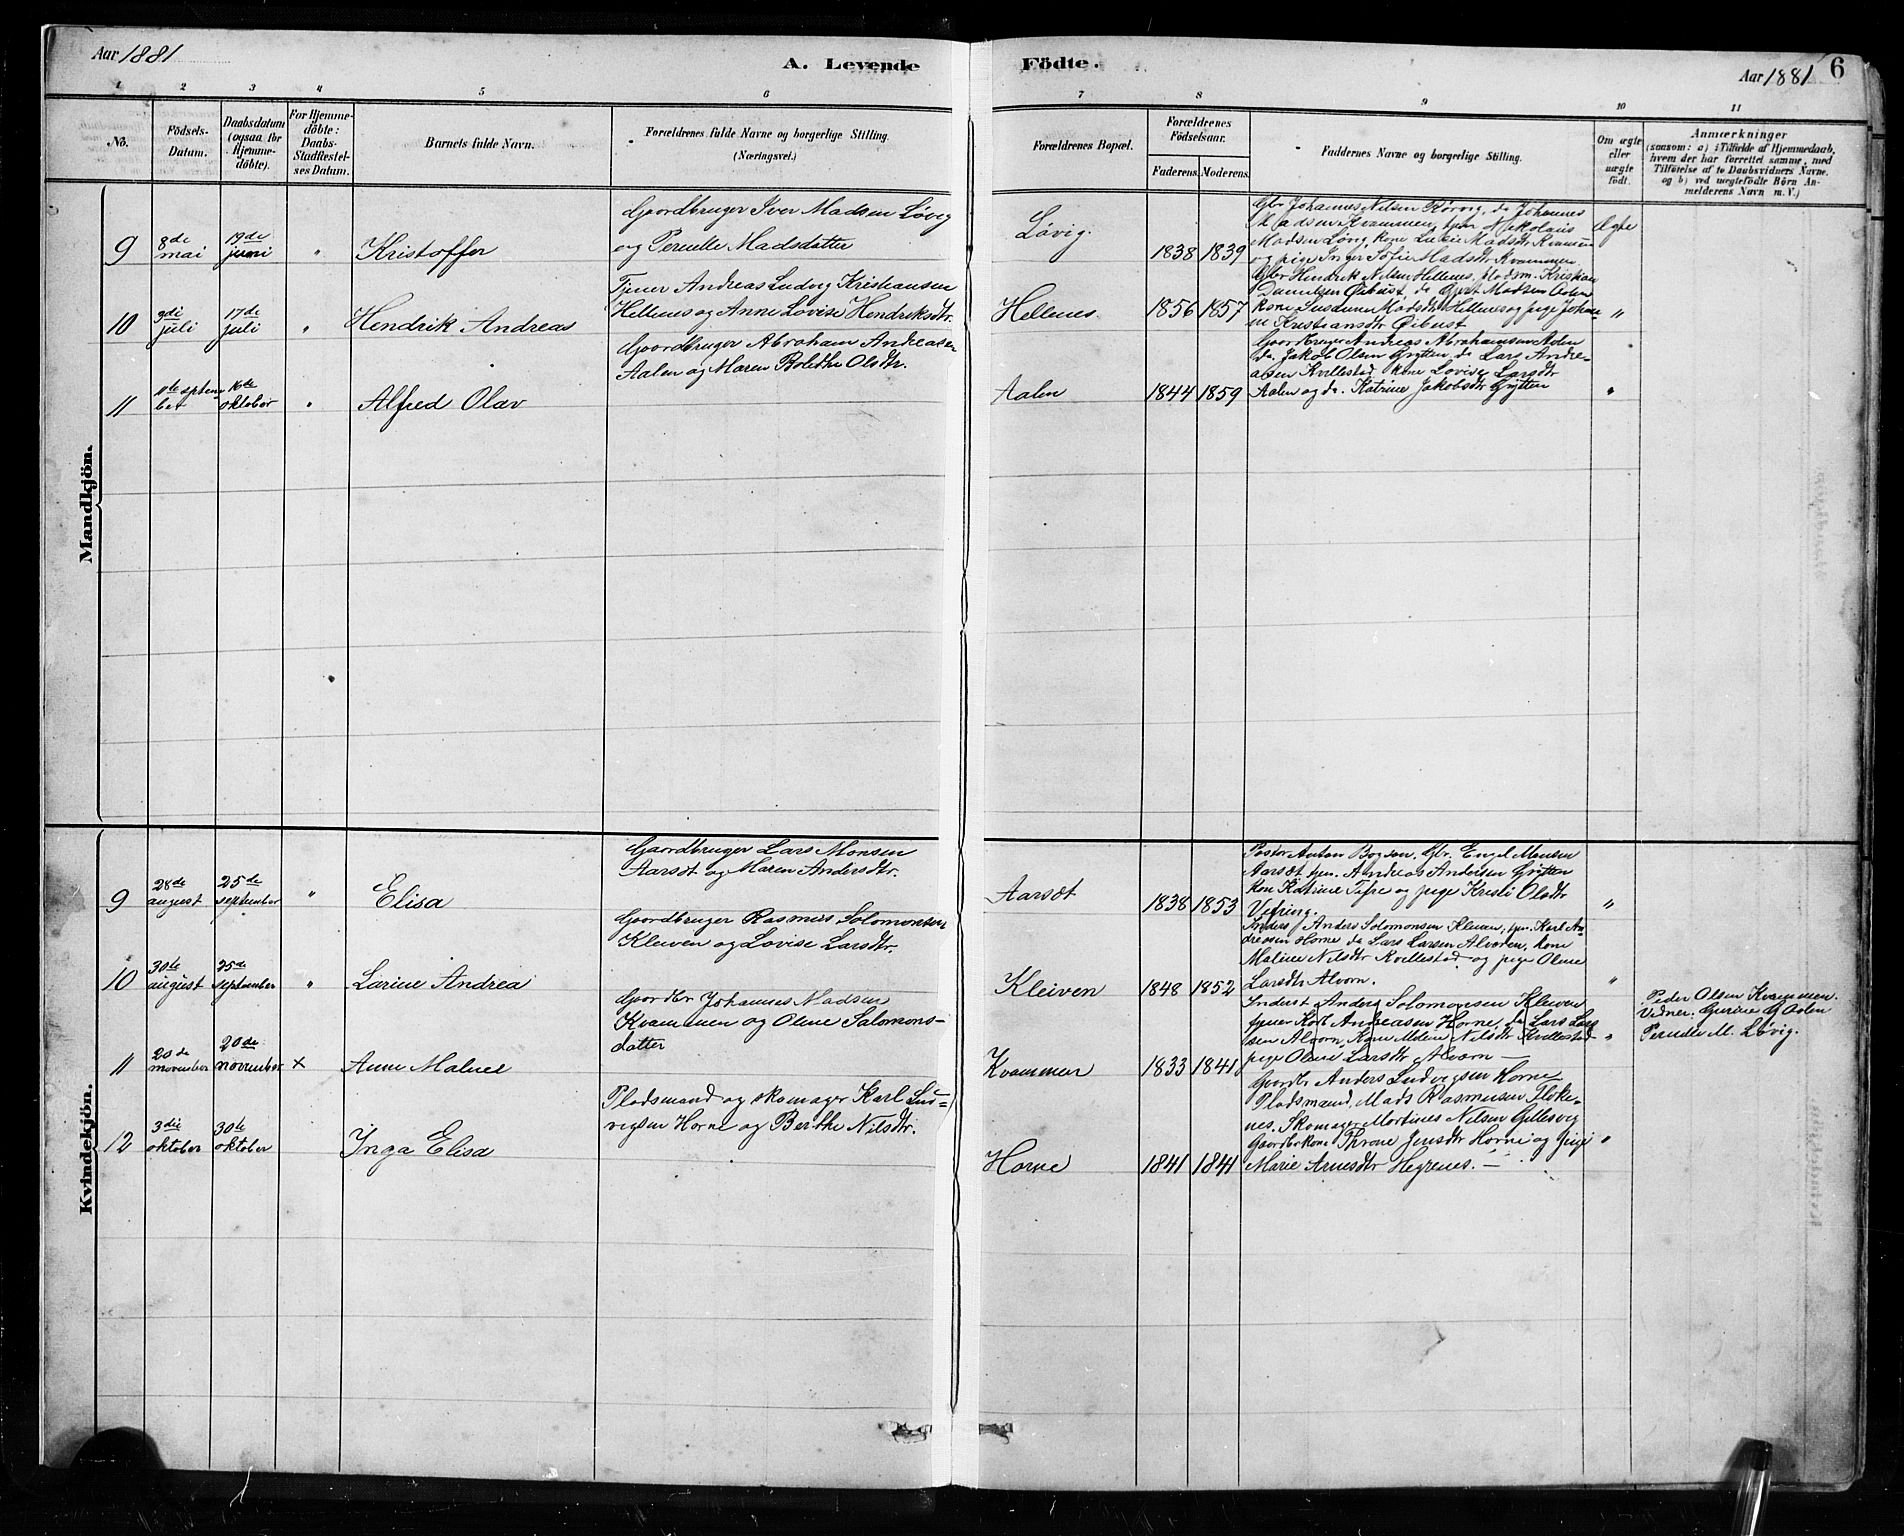 Aar 1881
A. Levende Födte.
Aar 1881
6
1 2 3 4 5 6 7 8 9 10 11
No.
Födsels-
Datum.
Daabsdatum
(ogsaa for
Hjemme-
döbte).
For Hjemme-
döbte:
Daabs-
Stadfæstel-
ses Datum.
Barnets fulde Navn.
Forældrenes fulde Navne og borgerlige Stilling.
(Næringsvei.)
Forældrenes Bopæl.
Forældrenes
Födselsaar.
Faderens. Moderens.
Faddernes Navne og borgerlige Stilling.
Om ægte
eller
uægte
födt.
Anmærkninger
(saasom: a) i Tilfælde af Hjemmedaab,
hvem der har forrettet samme, med
Tilföielse af to Daabsvidners Navne.
og b) ved uægtefödte Börn An-
melderens Navn m. V.)
Mandkjön.
9
8de
mai
19de
juni
"
Kristoffer
Gaardbruger Iver Madsen Løvig
og Pernille Madsdatter
Løvig.
1838 1839
Gbr Johannes Nilsen Rørvig, do Johannes
Madsen Kvammen, tjen Nikolaus
Madsen Løvig, kone Lucie Madsdtr Kvammen
og pige Inger Sofie Madsdtr Kvammen
Ægte
10
9di
juli
17de
juli
"
Hendrik Andreas
Tjener Andreas Ludvig Kristiansen
Hellenes og Anne Lovise Hendriksdtr.
Hellenes.
1856 1857
Gbr Hendrik Nilsen Hellenes, Pladsm. Kristian
Danielsen Øibust, do Gjert Madsen Aalen
Kone Susanne Madsdtr Hellenes og pige Johan-
ne Kristiansdtr Øibust
"
11
septem
ber
16de
oktober
"
Alfred Olav
Gaardbruger Abraham Andreasen
Aalen og Maren Bolethe Olsdtr.
Aalen
1844 1859
Gaardbruger Andreas Abrahamsen Aalen
do. Jakob Olsen Grytten do Lars Andre-
asen Kvillestad kone Lovise Larsdtr
Aalen og do. Katrine Jakobsdtr Grytten
"
Kvindekjön.
9
28de
august
25de
september
"
Elisa
Gaardbruger Lars Monsen
Aarsæt og Maren Andersdtr.
Aarsæt
1838 1853
Pastor Anton Bogson, Gbr. Engel Monsen
Aarsæt tjen. Andreas Andersen Grytten
kone Katrine Tifre og pige Kristi Olsdtr
Vefring.
"
10
30te
august
25de
september
"
Larine Andrea
Gaardbruger Rasmus Solomonsen
Kleiven og Lovise Larsdtr.
Kleiven
1848 1852
Anders Solomonsen Kleiven, tjen. Karl An-
dreasen Horne do Lars Larsen Alvoren, kone
Maline Nilsdtr Kvillestad og pige Oline
Larsdtr Alvorn.
"
11
20de
november
20de
november
×
Anne Malene
Gaardbr Johannes Madsen
Kvammen og Oline Salomons-
datter
Kvammen
1833 1841
Inderst Anders Solomonsen Kleiven
tjener Karl Andreasen Horne, do Lars Lar-
sen Alvorn, Kone Malene Nilsdtr Kvillestad
pige Oline Larsdtr Alvorn —
"
Peder Olsen Kvammen.
Vidner: Gurine G Aalen
Pernille M. Løvig.
12
3die
oktober
30te
oktober
Inga Elisa
Pladsmand og skomager Karl Lud-
vigsen Horne og Berthe Nilsdtr.
Horne
1841 1841
Gaardbr Anders Ludvigsen Horne
Pladsmand Mads Rasmussen Floke-
nes. Skomager Mortines Nilsen Gillesvig
Gaardbrkone Throne Jensdtr Horne og pige
Marie Arnesdtr Hegrenes. —
"